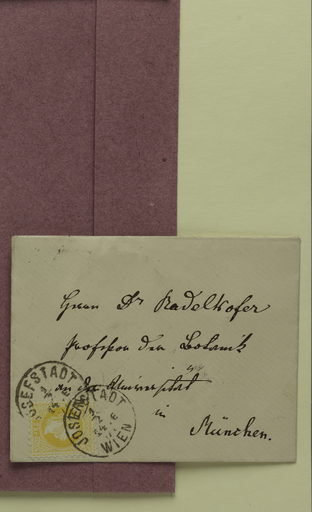 Herrn Dr Radelkofer
Professor der Botanik
an der Universität
in
München.
JOSEFSTADT
WIEN
JOSEFSTADT
WIEN